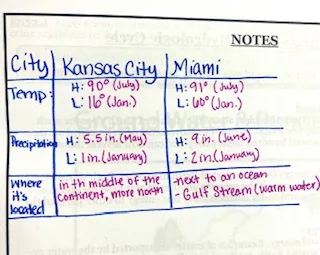 NOTES
City | Kansas City | Miami
Temp: | H: 90° (July) | H: 91° (July)
L: 16° (Jan.) | L: 60° (Jan.)
Precipitation | H: 5.5 in. (May) | H: 9 in. (June)
L: 1 in. (January) | L: 2 in. (January)
Where | in th middle of the | -next to an ocean
it's | continent, more north | - Gulf Stream (warm water)
located